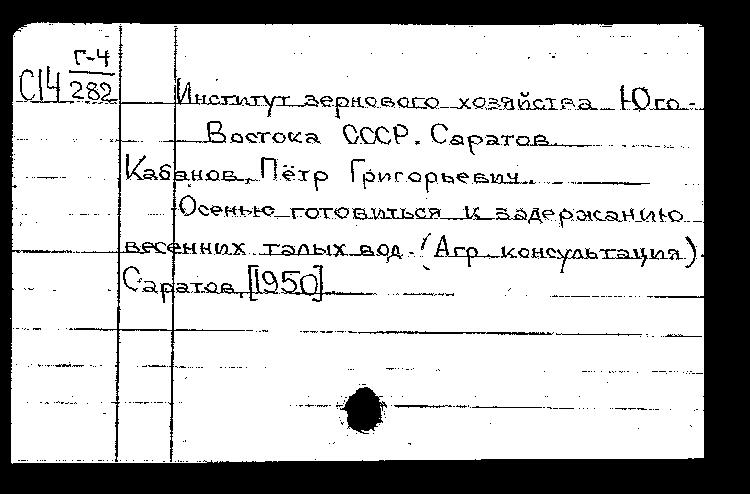 Г-4
С14 282
Институт зернового хозяйства Юго-
Востока СССР. Саратов.
Кабанов, Пётр Григорьевич.
Осенью готовиться к задержанию
весенних талых вод. (Агр. консультация).
Саратов, [1950]